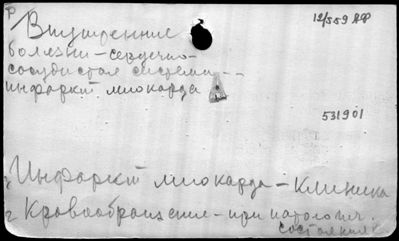 Р
12/559 АФ
Внутренние
болезни – сердечно-
сосудистая система --
инфаркт миокарда
531901
Инфаркт миокарда – клиника
2 Кровообращение – при патологич.
состояниях